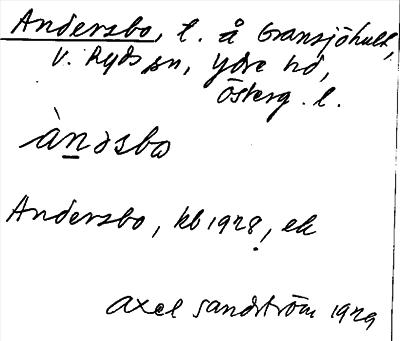 Andersbo, t. å Gransjöhult,
V. Ryds sn, Ydre hd,
Österg. l.
ànəsbω
Andersbo, kb 1928, ek
Axel Sandström 1929